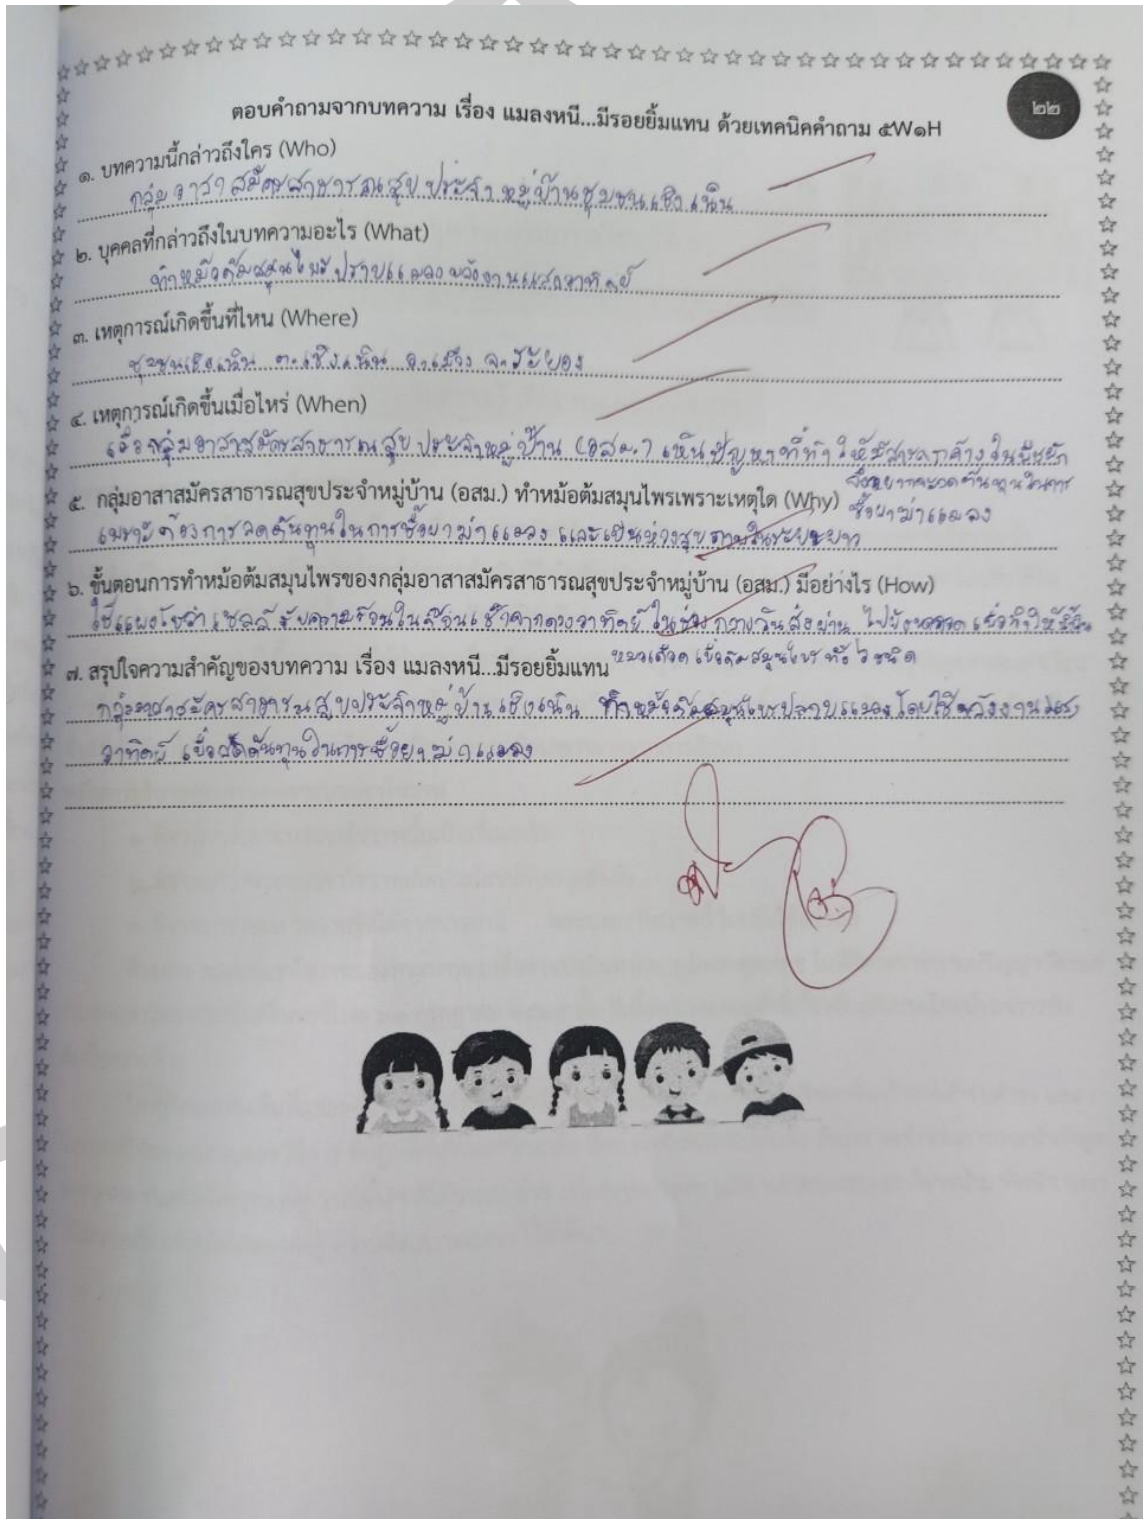 ๒๒
ตอบคำถามจากบทความ เรื่อง แมลงหนี...มีรอยยิ้มแทน ด้วยเทคนิคคำถาม ๕W๑H
๑. บทความนี้กล่าวถึงใคร (Who)
กลุ่มอาสาสมัครสาธารณสุขประจำหมู่บ้านชุมชนเชิงเนิน
๒. บุคคลที่กล่าวถึงในบทความอะไร (What)
ทำหม้อต้มสมุนไพรปราบแมลงพลังงานแสงอาทิตย์
๓. เหตุการณ์เกิดขึ้นที่ไหน (Where)
ชุมชนเชิงเนิน ต.เชิงเนิน อ.เมือง จ.ระยอง
๔. เหตุการณ์เกิดขึ้นเมื่อไหร่ (When)
เมื่อกลุ่มอาสาสมัครสาธารณสุขประจำหมู่บ้าน (อสม.) เห็นปัญหาที่ทำให้มีสารตกค้างในพืชผัก
จึงอยากจะลดต้นทุนในการ
ซื้อยาฆ่าแมลง
๕. กลุ่มอาสาสมัครสาธารณสุขประจำหมู่บ้าน (อสม.) ทำหม้อต้มสมุนไพรเพราะเหตุใด (Why)
เพราะต้องการลดต้นทุนในการซื้อยาฆ่าแมลง และเป็นห่วงสุขภาพในระยะยาว
๖. ขั้นตอนการทำหม้อต้มสมุนไพรของกลุ่มอาสาสมัครสาธารณสุขประจำหมู่บ้าน (อสม.) มีอย่างไร (How)
ใช้แผงโซล่าเซลล์รับความร้อนในจากดวงอาทิตย์ในช่วงกลางวันส่งผ่านไปยังขดลวด เพื่อทำให้
เพื่อต้มสมุนไพรทั้ง ชนิด
๗. สรุปใจความสำคัญของบทความ เรื่อง แมลงหนี...มีรอยยิ้มแทน
กลุ่มอาสาสมัครสาธารณสุขประจำหมู่บ้านเชิงเนิน ทำหม้อต้มสมุนไพรปราบแมลงโดยใช้พลังงานแสง
อาทิตย์ เพื่อลดต้นทุนในการซื้อยาฆ่าแมลง